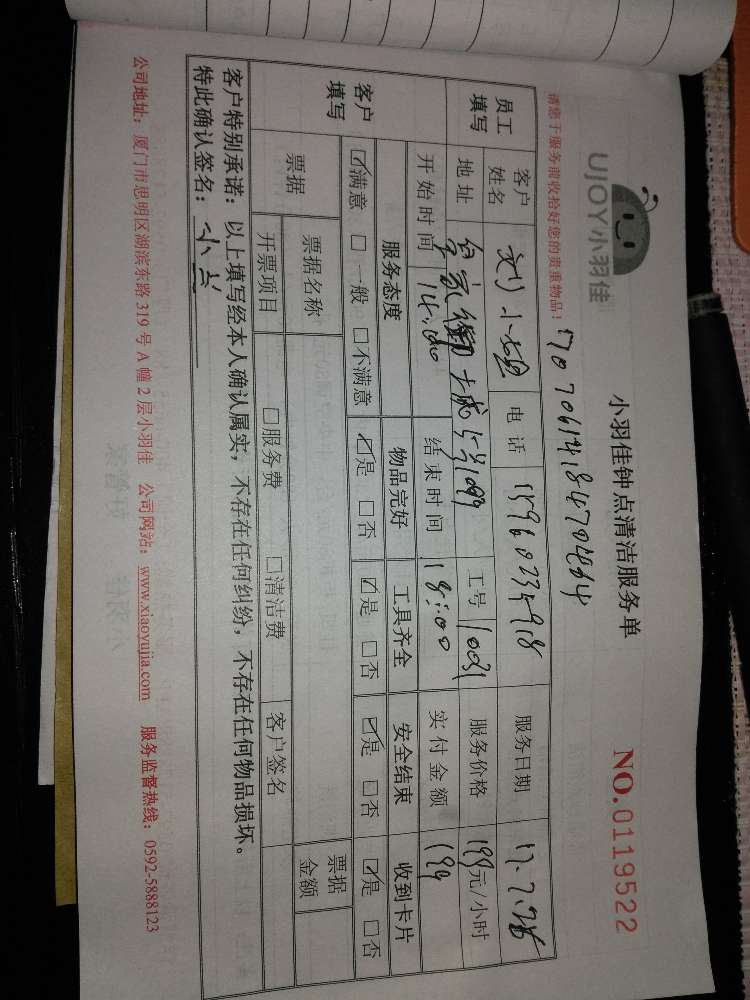 UJOY小羽佳
小羽佳钟点清洁服务单
NO.0119522
请您于服务前收拾好您的贵重物品!
员工填写 客户姓名 刘小姐 电话 服务日期 17.7.28
地址 工号 服务价格 199元/小时
开始时间 14:00 结束时间 18:00 实付金额 199
客户填写 服务态度 物品完好 工具齐全 安全结束 收到卡片
☑满意 □一般 □不满意 ☑是 □否 ☑是 □否 ☑是 □否 ☑是 □否
票据 票据名称 票据金额
开票项目 □服务费 □清洁费 客户签名
客户特别承诺：以上填写经本人确认属实，不存在任何纠纷，不存在任何物品损坏。
特此确认签名：
公司地址：厦门市思明区湖滨东路319号A幢2层小羽佳 公司网站：www.xiaoyujia.com 服务监督热线：0592-5888123